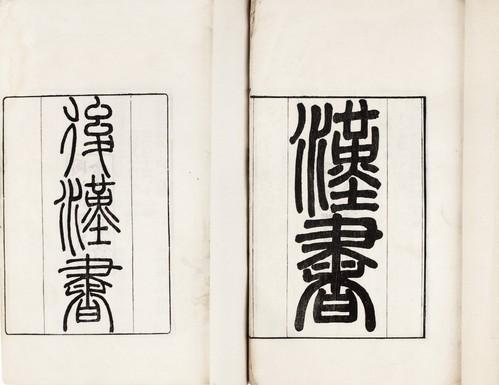 漢書
後漢書